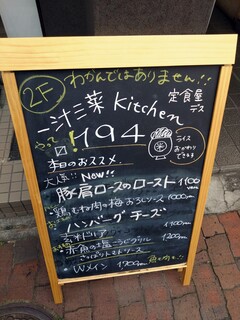 2F わかんではありません!!
一汁三菜 Kitchen
定食屋デス
194
ライス
おかわり
できます
本日のおススメ
大人気!! Now!!
豚肩ロースのロースト 1100yen
・鶏むね肉の梅おろしソース 1000yen
・ハンバーグ チーズ
1100yen
・赤魚の塩こうじグリル 1200yen
さっぱりトマトソース
・Wメイン 1700yen